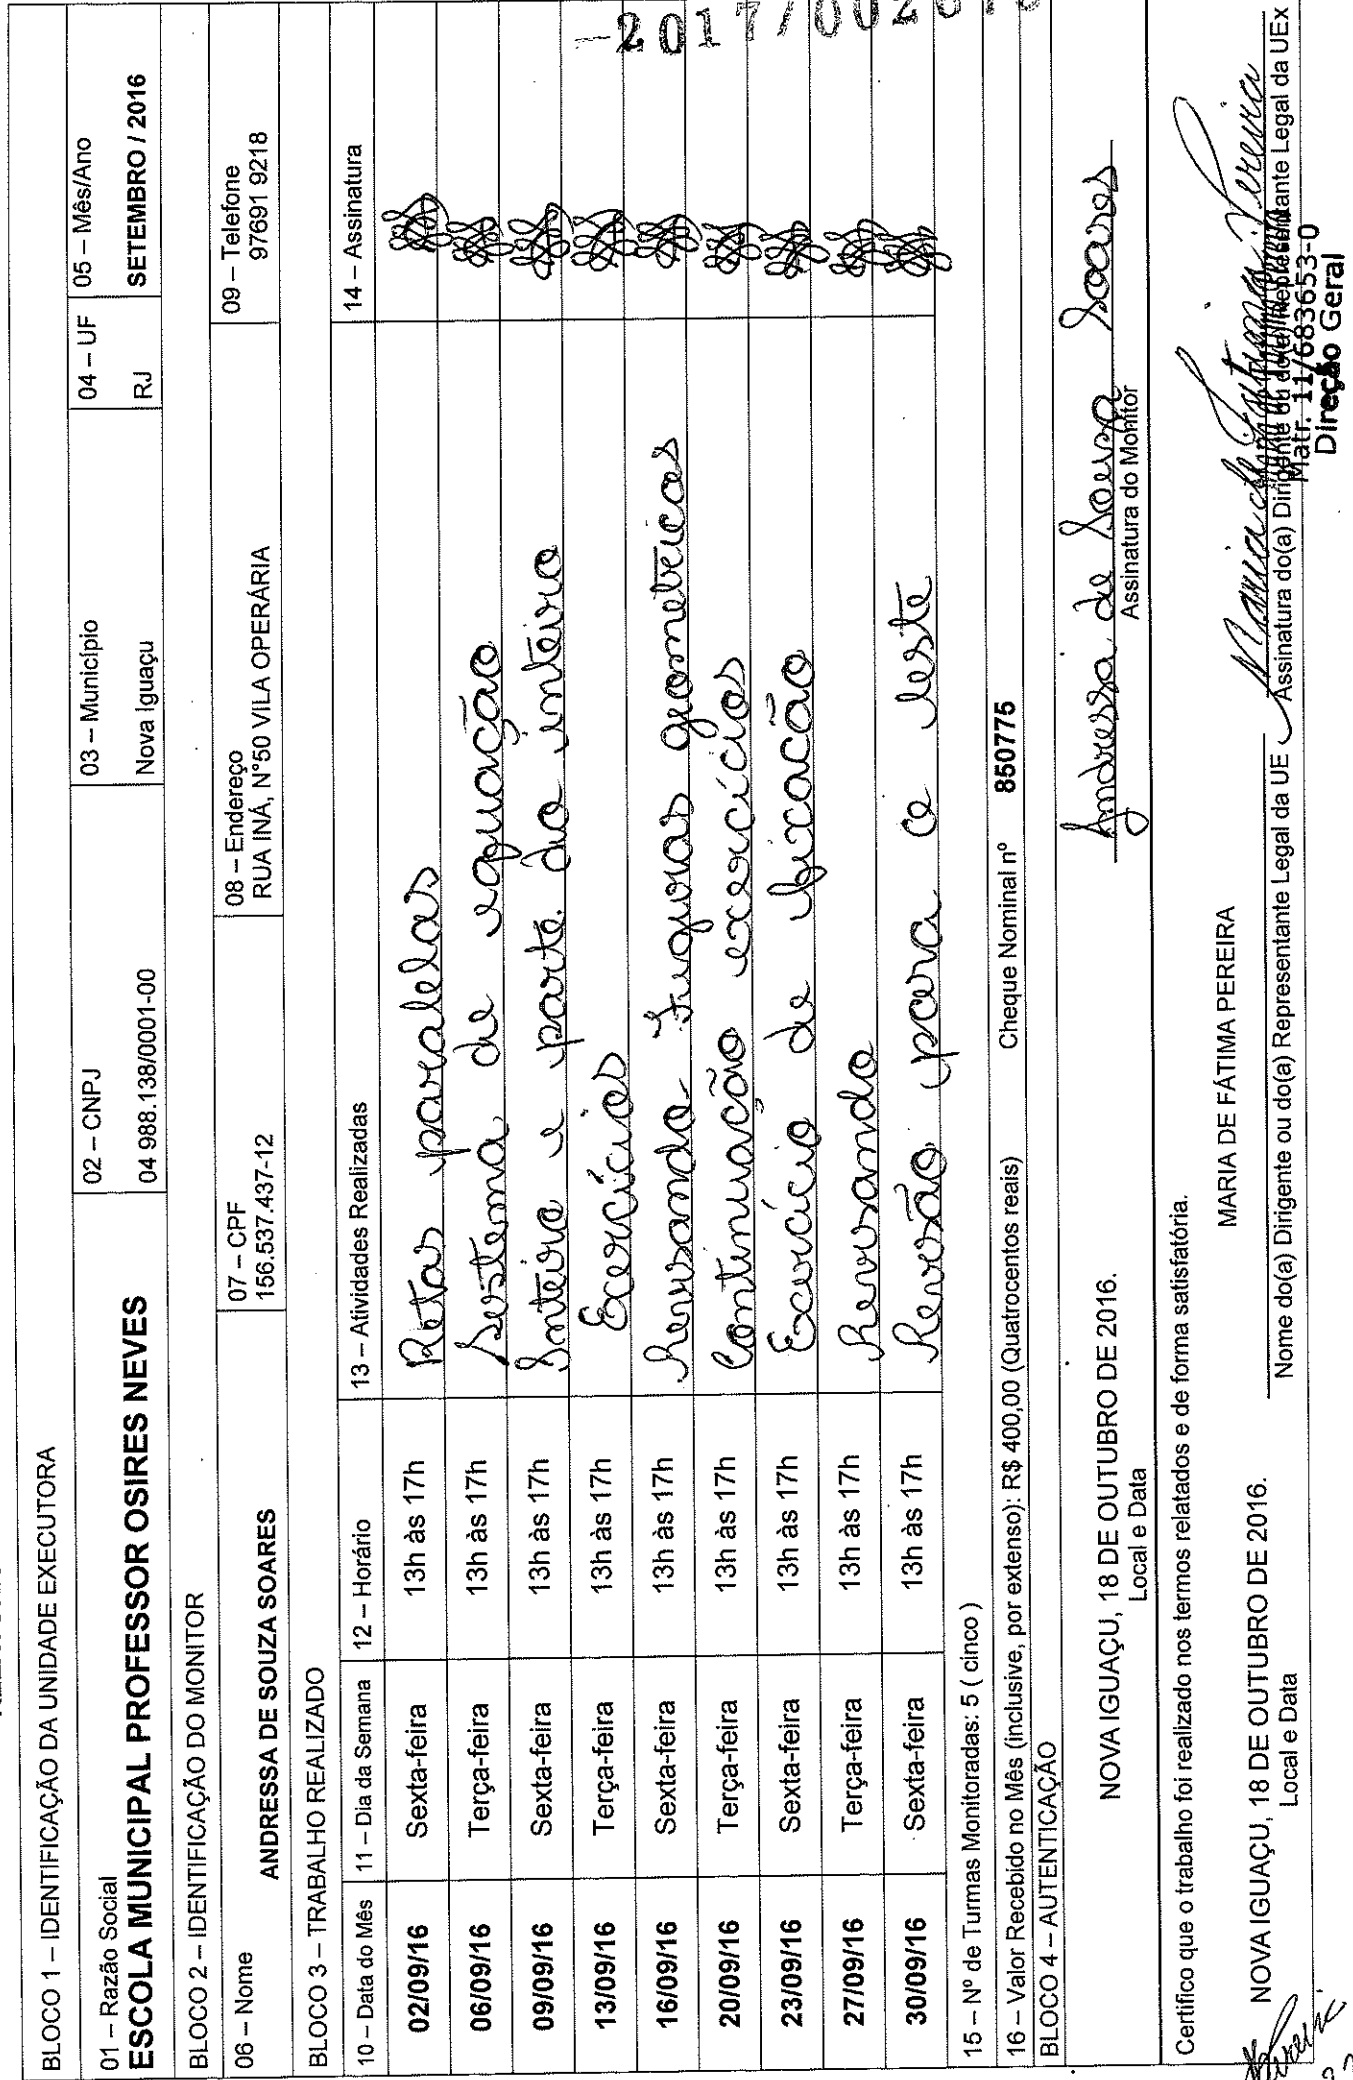 BLOCO 1 – IDENTIFICAÇÃO DA UNIDADE EXECUTORA
01 – Razão Social 02 – CNPJ 03 – Município 04 – UF 05 – Mês/Ano
ESCOLA MUNICIPAL PROFESSOR OSIRES NEVES 04 988.138/0001-00 Nova Iguaçu RJ SETEMBRO / 2016
BLOCO 2 – IDENTIFICAÇÃO DO MONITOR
06 – Nome 07 – CPF 08 – Endereço 09 – Telefone
ANDRESSA DE SOUZA SOARES 156.537.437-12 RUA INÁ, N°50 VILA OPERÁRIA 97691 9218
BLOCO 3 – TRABALHO REALIZADO
10 – Data do Mês 11 – Dia da Semana 12 – Horário 13 – Atividades Realizadas 14 – Assinatura
02/09/16 Sexta-feira 13h às 17h Retas paralelas
06/09/16 Terça-feira 13h às 17h Sistema de equação
09/09/16 Sexta-feira 13h às 17h Inteiro e parte do inteiro
13/09/16 Terça-feira 13h às 17h Exercícios
16/09/16 Sexta-feira 13h às 17h Revisando Figuras geometricas
20/09/16 Terça-feira 13h às 17h Continuação exercícios
23/09/16 Sexta-feira 13h às 17h Exercício de fixacão
27/09/16 Terça-feira 13h às 17h Revisando
30/09/16 Sexta-feira 13h às 17h Revisão para o teste
-2017/002
15 – Nº de Turmas Monitoradas: 5 ( cinco )
16 – Valor Recebido no Mês (inclusive, por extenso): R$ 400,00 (Quatrocentos reais) Cheque Nominal nº 850775
BLOCO 4 – AUTENTICAÇÃO
NOVA IGUAÇU, 18 DE OUTUBRO DE 2016. Andressa de Souza Soares
Local e Data Assinatura do Monitor
Certifico que o trabalho foi realizado nos termos relatados e de forma satisfatória.
NOVA IGUAÇU, 18 DE OUTUBRO DE 2016. MARIA DE FÁTIMA PEREIRA Maria de Fátima Pereira
Local e Data Nome do(a) Dirigente ou do(a) Representante Legal da UE Assinatura do(a) Dirigente ou do(a) Representante Legal da UEx
Matr. 11/683653-0
Direção Geral